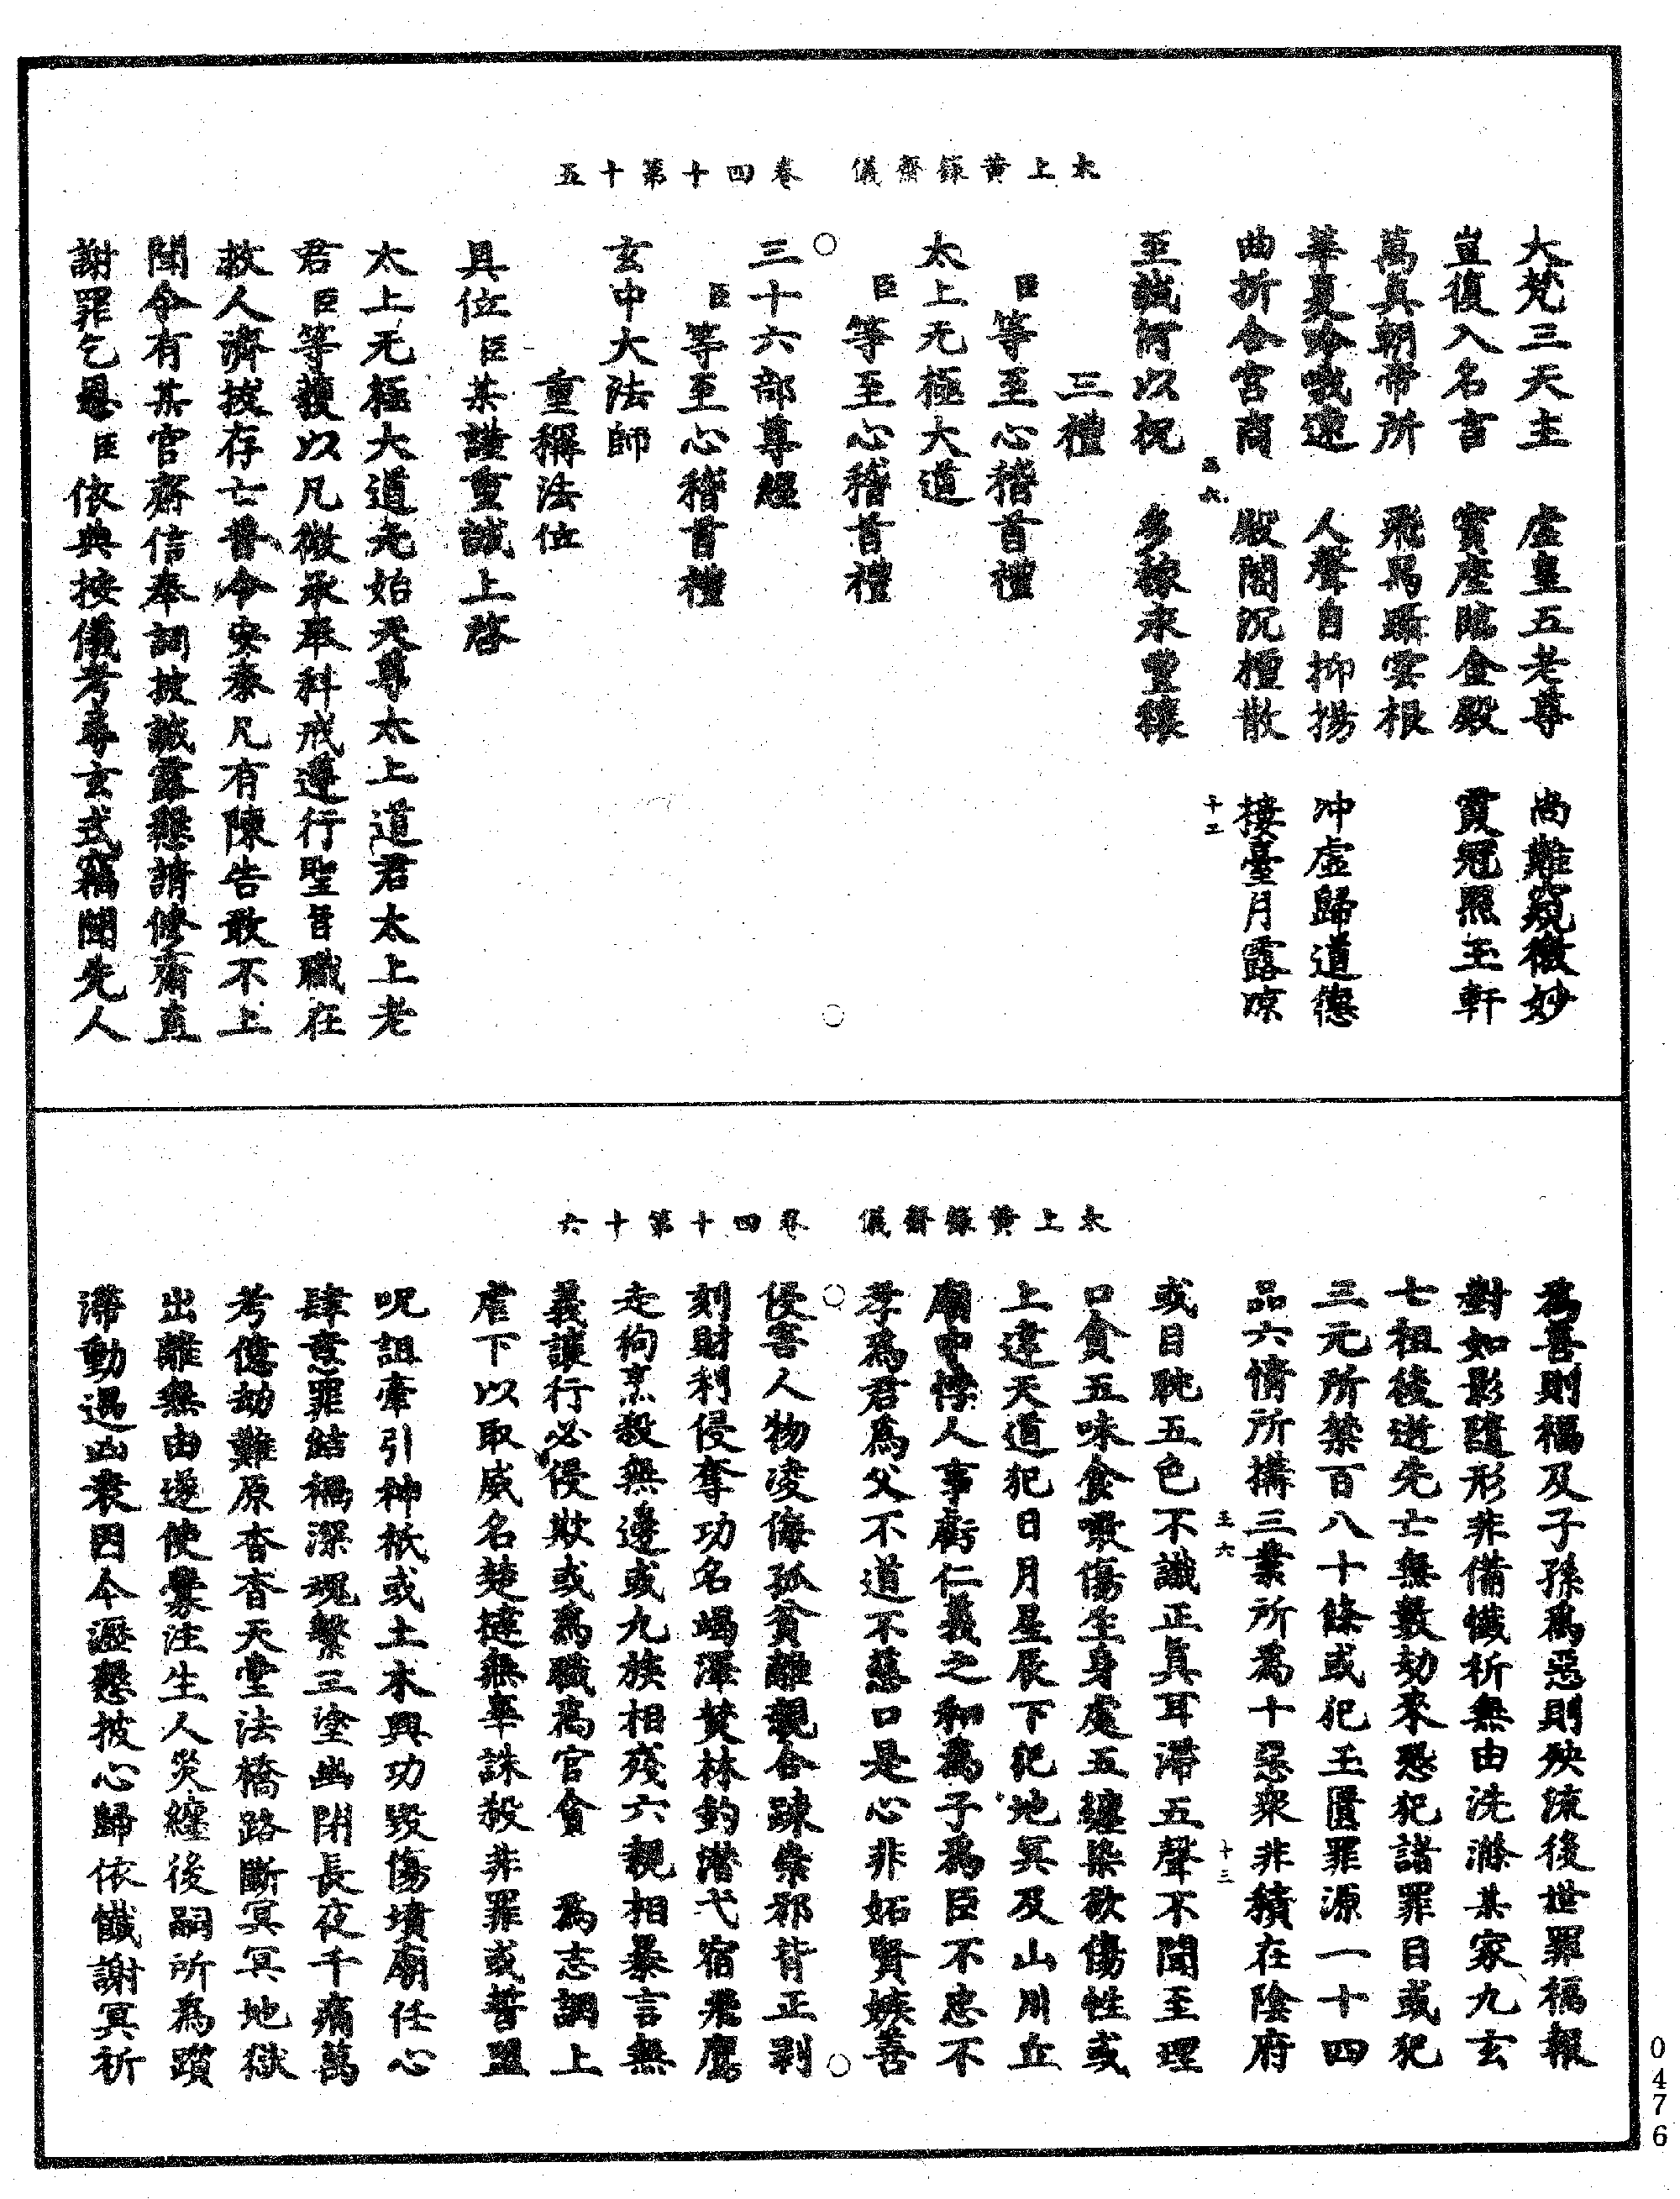 太上黃籙齋儀　卷四十第十五
大梵三天主　虛皇五老尊　尚難窺微妙
豈復入名言　寶座臨金殿　霞冠照玉軒
萬真朝帝所　飛舄躡雲根
華夏吟哦遠　人聲自抑揚　沖虛歸道德
曲折合宮商　殿閣沉檀散　接臺月露涼
六　十二
至誠何以祝　多稼永豐穰
三禮
臣等至心稽首禮
太上无極大道
臣等至心稽首禮
三十六部尊經
臣等至心稽首禮
玄中大法師
重稱法位
具位臣某謹重誠上啓
太上无極大道元始天尊太上道君太上老
君臣等護以凡微承奉科戒遵行聖旨職在
救人濟拔存亡普令安泰凡有陳告敢不上
聞今有某官齋信奉詞披誠露懇請修齋直
謝罪乞恩臣依典按儀考尋玄式竊聞先人
太上黃籙齋儀　卷四十第十六
為善則福及子孫為惡則殃流後世罪福報
對如影隨形非備懺祈無由洗滌某家九玄
七祖後逝先亡無數劫來恐犯諸罪目或犯
三元所禁百八十條或犯玉匱罪源一十四
品六情所構三業所為十惡衆非積在陰府
六　十三
或目眈五色不識正真耳滯五聲不聞至理
口貪五味食噉傷生身處五纏染欲傷性或
上違天道犯日月星辰下犯地冥及山川丘
廟中悖人事虧仁義之和為子為臣不忠不
孝為君為父不道不慈口是心非妬賢嫉善
侵害人物凌侮孤貧離親合踈崇邪背正剥
刻財利侵奪功名竭澤焚林釣潛弋宿飛鷹
走狗烹殺無邊或九族相殘六親相暴言無
義讓行必侵欺或為職為官貪　為志調上
虐下以取威名楚撻無辜誅殺非罪或誓盟
呪詛牽引神祇或土木興功毀傷墳廟任心
肆意罪結禍深魂繫三塗幽閉長夜千痛萬
考億劫難原杳杳天堂法橋路斷冥冥地獄
出離無由遂使釁注生人災纏後嗣所為躓
滯動遇凶衰因今瀝懇披心歸依懺謝冥祈
0476